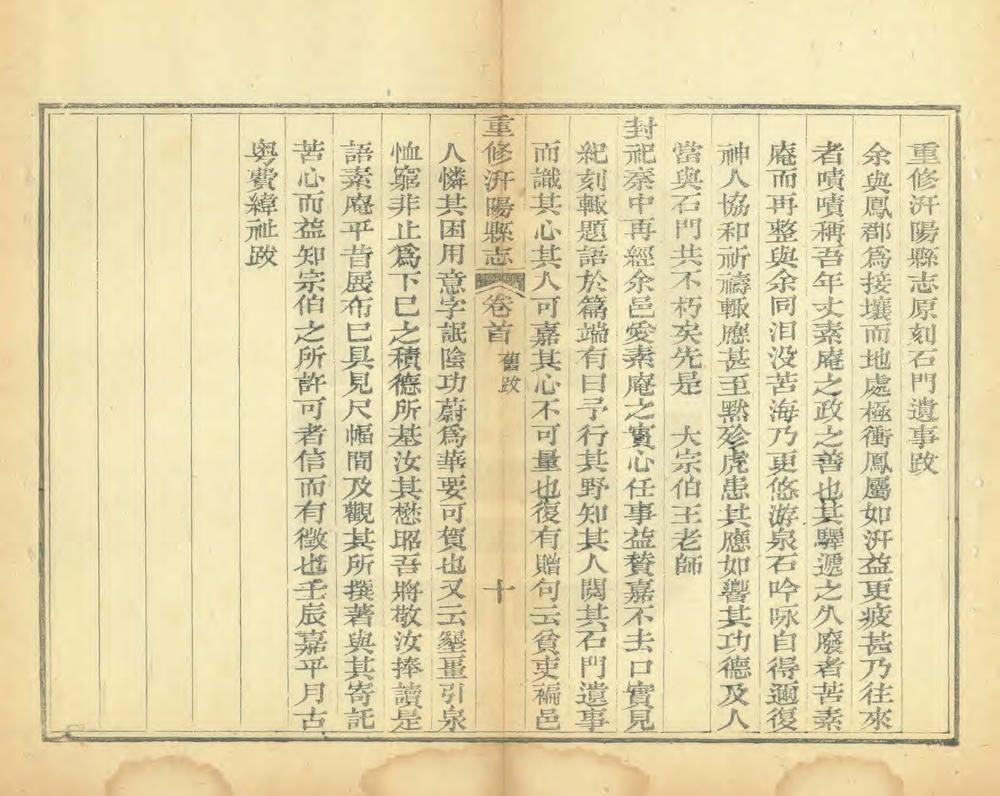 重修汧陽縣志原刻石門遺事跋
余與鳳郡爲接壤而地處極衝鳳屬如汧益更疲甚乃往來
者嘖嘖稱吾年丈素庵之政之善也其驛遞之久廢者苦素
庵而再整與余同汨没苦海乃更悠游泉石吟咏自得邇復
神人協和祈禱輙應甚至黙殄虎患其應如響其功德及人
當與石門共不朽矣先是　大宗伯王老師
封祀秦中再經余邑愛素庵之實心任事益賛嘉不去口實見
紀刻輙題語於篇端有曰予行其野知其人閱其石門遺事
而識其心其人可嘉其心不可量也復有贈句云貧吏褊邑
重修汧陽縣志 卷首 舊跋 十
人憐其困用意字氓陰功蔚爲華要可賀也又云墾畺引泉
恤窮非止爲下巳之積德所基汝其懋昭吾將敬汝捧讀是
語素庵平昔展布已具見尺幅間及觀其所撰著與其寄託
苦心而益知宗伯之所許可者信而有徵也壬辰嘉平月古
粤費緯祉跋